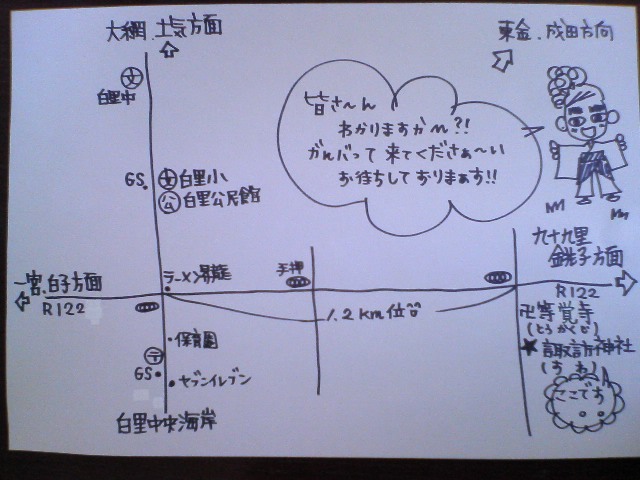 大網.土気方面
東金.成田方向
文
白里中
皆さ～ん
わかりますかー?!
がんバって来てくださぁ～い
お待ちしておりまぁす!!
GS
文 白里小
公 白里公民館
九十九里
銚子方面
一宮.白子方面
ラーメン
手押
R122
R122
1.2km位
卍等覚寺
(とうかくじ)
保育園
★諏訪神社
(すわ)
〒
GS
セブンイレブン
ここです
白里中央海岸